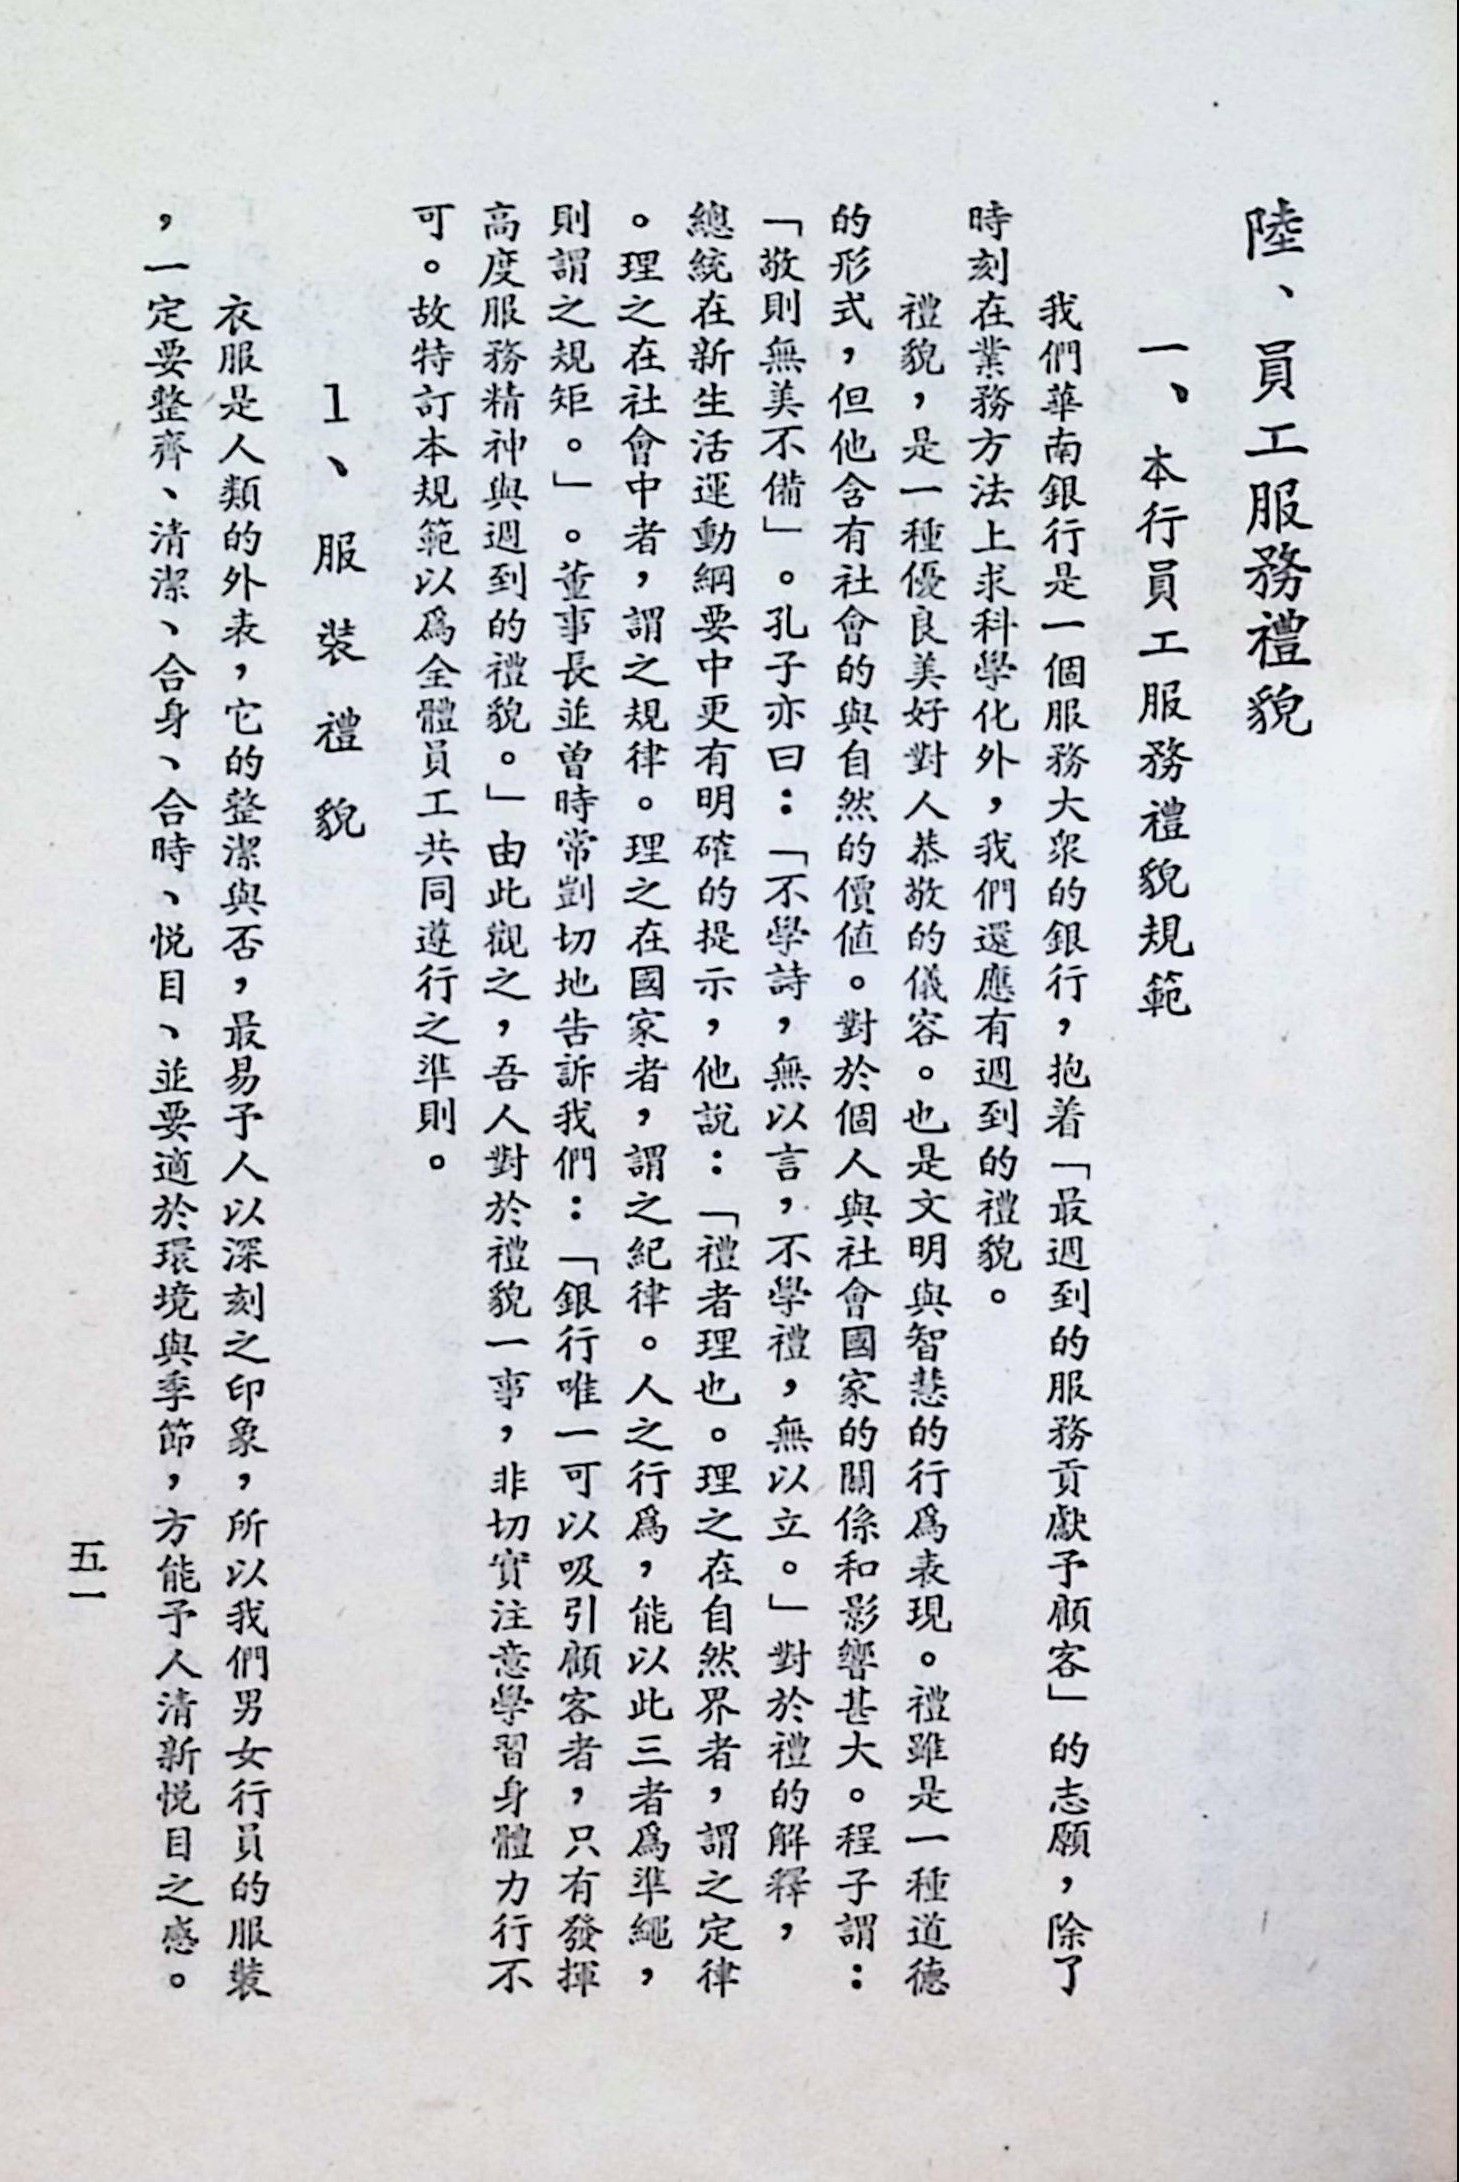 陸、員工服務禮貌
一、本行員工服務禮貌規範
我們華南銀行是一個服務大眾的銀行，抱着「最週到的服務貢獻予顧客」的志願，除了
時刻在業務方法上求科學化外，我們還應有週到的禮貌。
禮貌，是一種優良美好對人恭敬的儀容。也是文明與智慧的行為表現。禮雖是一種道德
的形式，但他含有社會的與自然的價值。對於個人與社會國家的關係和影響甚大。程子謂：
「敬則無美不備」。孔子亦曰：「不學詩，無以言，不學禮，無以立。」對於禮的解釋，
總統在新生活運動綱要中更有明確的提示，他說：「禮者理也。理之在自然界者，謂之定律
。理之在社會中者，謂之規律。理之在國家者，謂之紀律。人之行為，能以此三者為準繩，
則謂之規矩。」。董事長並曾時常剴切地告訴我們：「銀行唯一可以吸引顧客者，只有發揮
高度服務精神與週到的禮貌。」由此觀之，吾人對於禮貌一事，非切實注意學習身體力行不
可。故特訂本規範以為全體員工共同遵行之準則。
1、服裝禮貌
衣服是人類的外表，它的整潔與否，最易予人以深刻之印象，所以我們男女行員的服裝
，一定要整齊、清潔、合身、合時、悅目、並要適於環境與季節，方能予人清新悅目之感。
五一